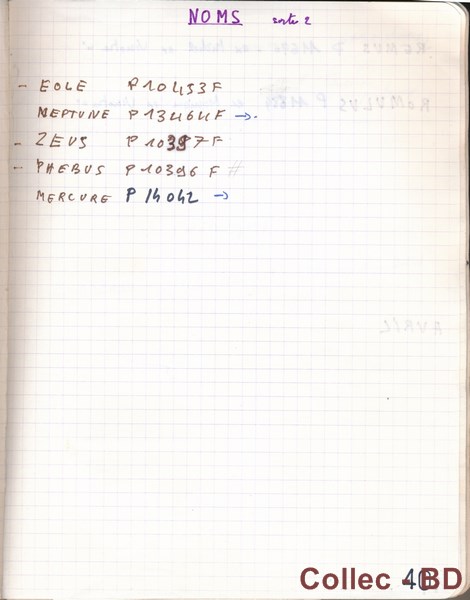 NOMS sortie 2
- EOLE P10453F
NEPTUNE P13464F →.
- ZEUS P10397F
- PHEBUS P10396F #
MERCURE P14042 →
AVRIL
40
Collec - BD